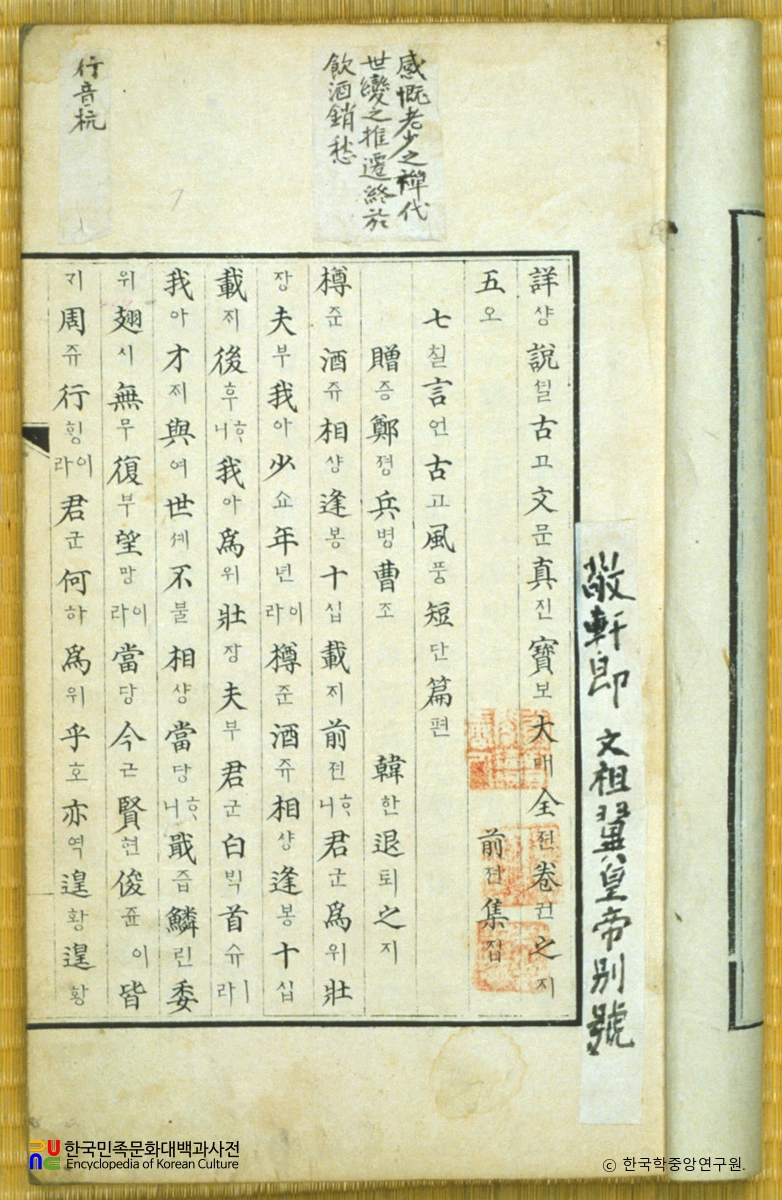 敬軒即 文祖翼皇帝別號
感慨老少之禪代
世變之推遷終於
飮酒銷愁
行音杭
詳샹說셜古고文문真진寶보大대全젼卷권之지
五오 前젼集집
七칠言언古고風풍短단篇편
贈증鄭졍兵병曹조 韓한退퇴之지
樽준酒쥬相샹逢봉十십載지前젼ᄒᆞ니君군爲위壯
장夫부我아少쇼年년이라樽준酒쥬相샹逢봉十십
載지後후ᄒᆞ니我아爲위壯장夫부君군白빅首슈ㅣ라
我아才지與여世셰不불相샹當당ᄒᆞ니戢즙鱗린委
위翅시無무復부望망이라當당今금賢현俊쥰이皆
기周쥬行힝이라君군何하爲위乎호亦역遑황遑황
한국민족문화대백과사전
Encyclopedia of Korean Culture
ⓒ 한국학중앙연구원.